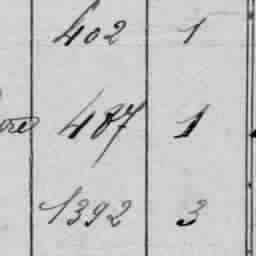 402 1
487 1
1392 3